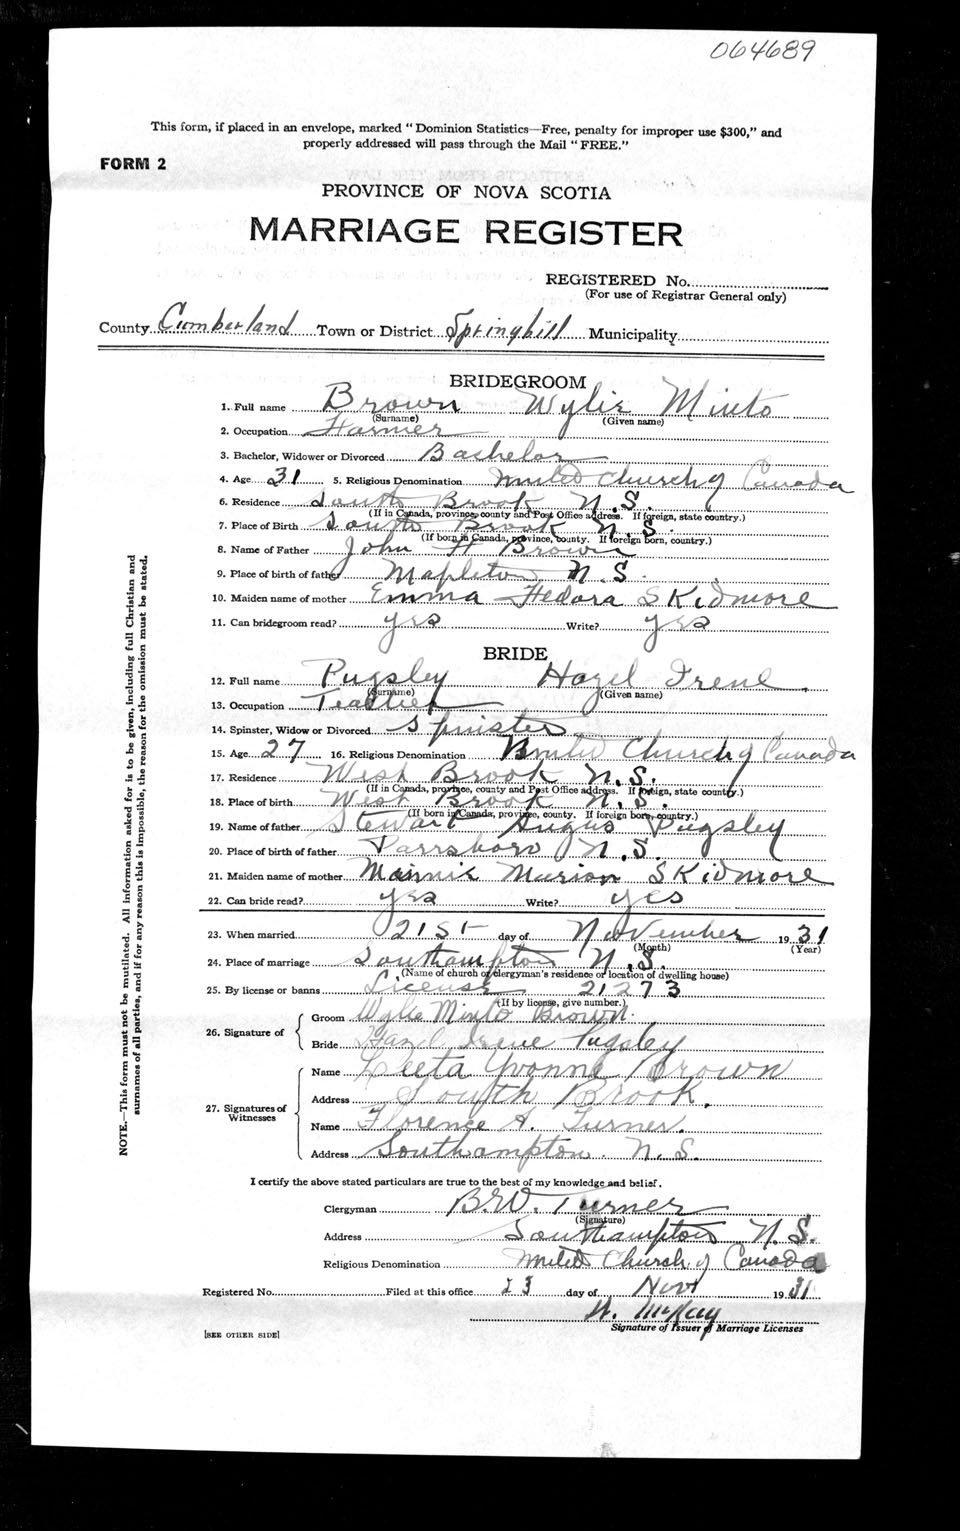 064689
This form, if placed in an envelope, marked "Dominion Statistics—Free, penalty for improper use $300," and
properly addressed will pass through the Mail "FREE."
FORM 2
PROVINCE OF NOVA SCOTIA
MARRIAGE REGISTER
REGISTERED No.
(For use of Registrar General only)
County Cumberland Town or District Springhill Municipality
BRIDEGROOM
1. Full name Brown Wylie Minto
(Surname) (Given name)
2. Occupation Farmer
3. Bachelor, Widower or Divorced Bachelor
4. Age 31 5. Religious Denomination United Church of Canada
6. Residence South Brook N.S.
(If in Canada, province, county and Post Office address. If foreign, state country.)
7. Place of Birth South Brook N.S.
(If born in Canada, province, county. If foreign born, country.)
8. Name of Father John H Brown
9. Place of birth of father Mapleton N.S.
10. Maiden name of mother Emma Fedora Skidmore
11. Can bridegroom read? yes Write? yes
BRIDE
12. Full name Pugsley Hazel Irene
(Surname) (Given name)
13. Occupation Teacher
14. Spinster, Widow or Divorced Spinster
15. Age 27 16. Religious Denomination United Church of Canada
17. Residence West Brook N.S.
(If in Canada, province, county and Post Office address. If foreign, state country.)
18. Place of birth West Brook N.S.
(If born in Canada, province, county. If foreign born, country.)
19. Name of father Stewart Angus Pugsley
20. Place of birth of father Parrsboro N.S.
21. Maiden name of mother Mainnie Marion Skidmore
22. Can bride read? yes Write? yes
23. When married 21st day of November 1931
(Month) (Year)
24. Place of marriage Southampton N.S.
(Name of church or clergyman's residence or location of dwelling house)
25. By license or banns License 21273
(If by license, give number.)
26. Signature of Groom Wylie Minto Brown.
Bride Hazel Irene Pugsley
27. Signatures of Witnesses Name Leeta Yvonne Brown
Address South Brook.
Name Florence A. Turner.
Address Southampton. N.S.
I certify the above stated particulars are true to the best of my knowledge and belief.
Clergyman B.W. Turner
(Signature)
Address Southampton N.S.
Religious Denomination United Church of Canada
Registered No. Filed at this office 23 day of Nov 1931
W. McKay
Signature of Issuer of Marriage Licenses
[SEE OTHER SIDE]
NOTE.—This form must not be mutilated. All information asked for is to be given, including full Christian and
surnames of all parties, and if for any reason this is impossible, the reason for the omission must be stated.